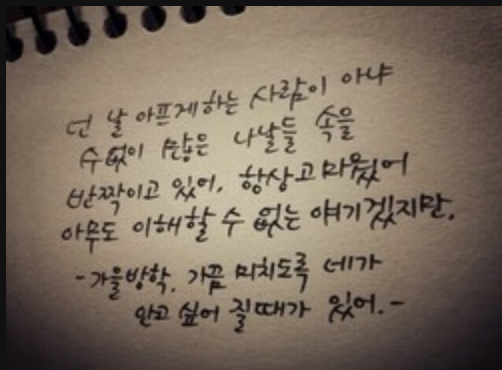 넌 날 아프게하는 사람이 아냐
수없이 많은 나날들 속을
반짝이고 있어. 항상 고마웠어
아무도 이해할 수 없는 얘기겠지만,
-가을방학, 가끔 미치도록 네가
안고 싶어 질때가 있어.-